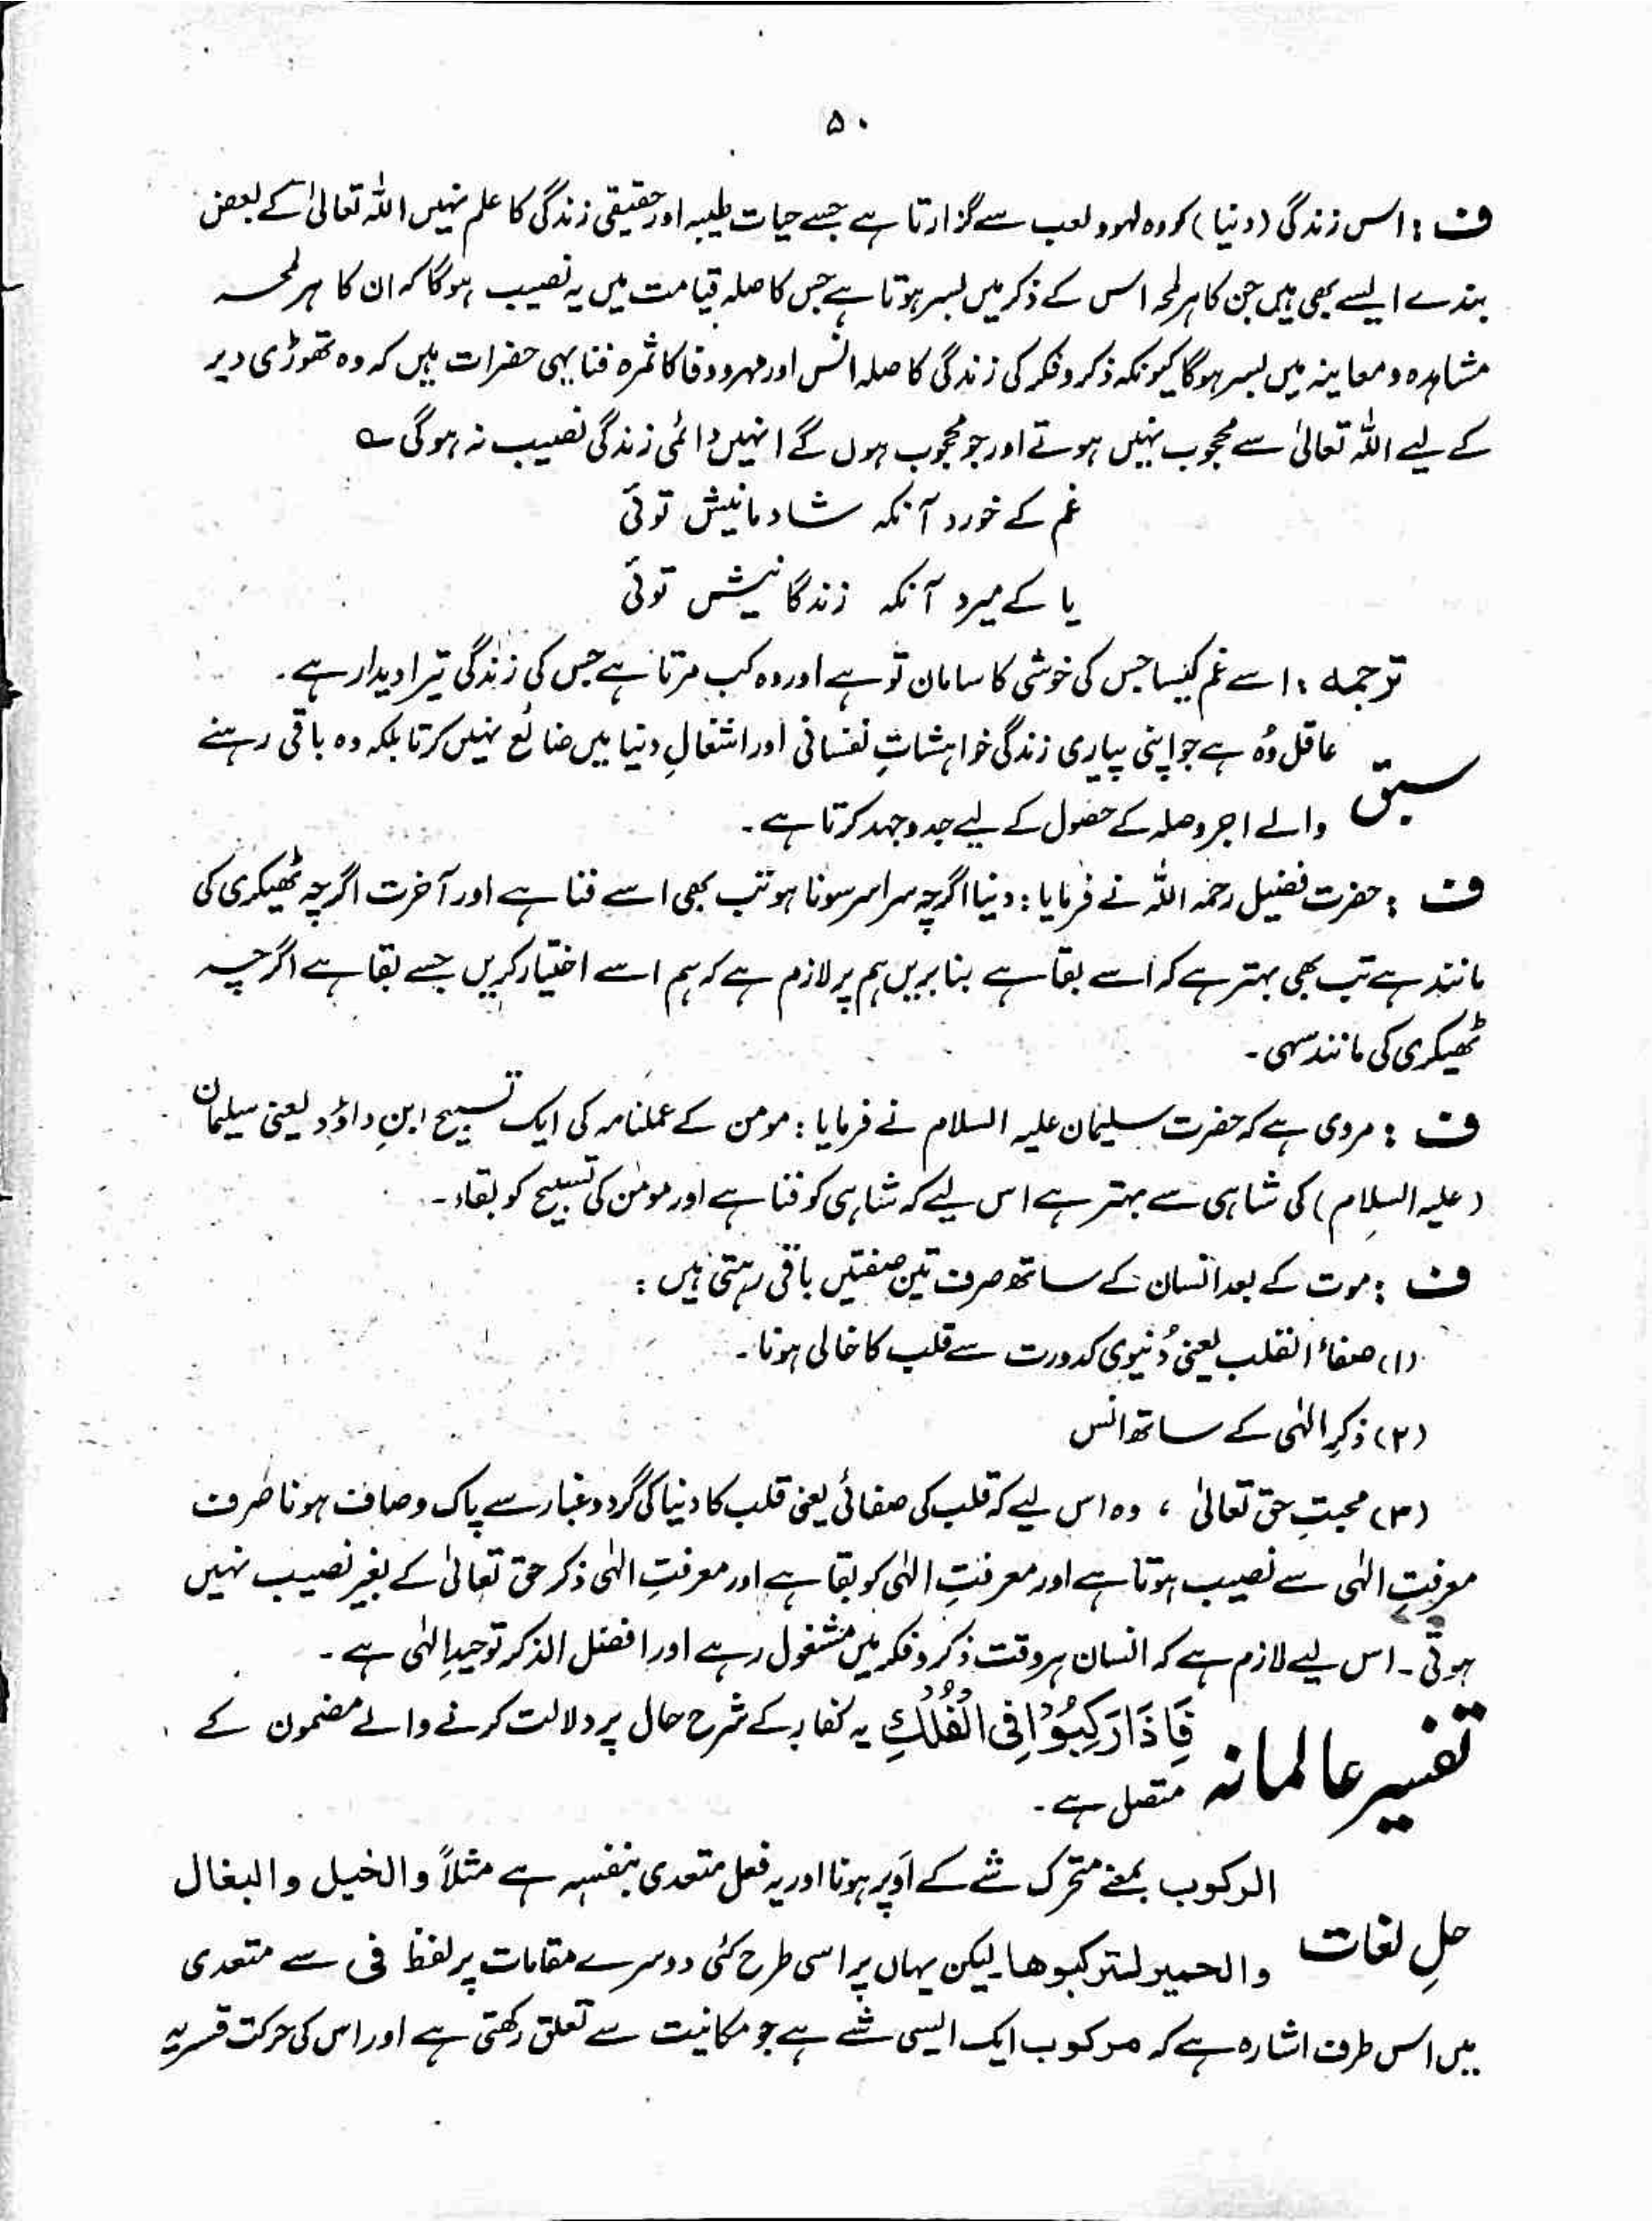 ۵۰
ف : اس زندگی (دنیا) کو وہ لہو و لعب سے گزارتا ہے جسے حیات طیبہ اور حقیقی زندگی کا علم نہیں اللہ تعالیٰ کے بعض
بندے ایسے بھی ہیں جن کا ہر لمحہ اس کے ذکر میں بسر ہوتا ہے جس کا صلہ قیامت میں یہ نصیب ہوگا کہ ان کا ہر لمحہ
مشاہدہ و معاینہ میں بسر ہوگا کیونکہ ذکر و فکر کی زندگی کا صلہ انس اور مہر و وفا کا ثمرہ فنا یہی حضرات ہیں کہ وہ تھوڑی دیر
کے لیے اللہ تعالیٰ سے محجوب نہیں ہوتے اور جو محجوب ہوں گے انہیں دائمی زندگی نصیب نہ ہوگی ؎
غم کے خورد آنکہ شادمانیش توئی
یا کے میرد آنکہ زندگانیش توئی
ترجمہ : اسے غم کیسا جس کی خوشی کا سامان تو ہے اور وہ کب مرتا ہے جس کی زندگی تیرا دیدار ہے۔
سبق عاقل وُہ ہے جو اپنی پیاری زندگی خواہشاتِ نفسانی اور اشغالِ دنیا میں ضائع نہیں کرتا بلکہ وہ باقی رہنے
والے اجر و صلہ کے حصول کے لیے جد و جہد کرتا ہے۔
ف : حضرت فضیل رحمہ اللہ نے فرمایا : دنیا اگرچہ سراسر سونا ہو تب بھی اسے فنا ہے اور آخرت اگرچہ ٹھیکری کی
مانند ہے تب بھی بہتر ہے کہ اسے بقا ہے بنا بریں ہم پر لازم ہے کہ ہم اسے اختیار کریں جسے بقا ہے اگرچہ
ٹھیکری کی مانند سہی۔
ف : مروی ہے کہ حضرت سلیمان علیہ السلام نے فرمایا : مومن کے عملنامہ کی ایک تسبیح ابنِ داؤد یعنی سلیمان
(علیہ السلام) کی شاہی سے بہتر ہے اس لیے کہ شاہی کو فنا ہے اور مومن کی تسبیح کو بقاء۔
ف : موت کے بعد انسان کے ساتھ صرف تین صفتیں باقی رہتی ہیں :
(۱) صفاءُ القلب یعنی دُنیوی کدورت سے قلب کا خالی ہونا۔
(۲) ذکرِ الٰہی کے ساتھ انس
(۳) محبتِ حق تعالیٰ ، وہ اس لیے کہ قلب کی صفائی یعنی قلب کا دنیا کی گرد و غبار سے پاک و صاف ہونا صرف
معرفتِ الٰہی سے نصیب ہوتا ہے اور معرفتِ الٰہی کو بقا ہے اور معرفتِ الٰہی ذکر حق تعالیٰ کے بغیر نصیب نہیں
ہوتی۔ اس لیے لازم ہے کہ انسان ہر وقت ذکر و فکر میں مشغول رہے اور افضل الذکر توحیدِ الٰہی ہے۔
تفسیر عالمانہ فَاِذَا رَكِبُوْا فِی الْفُلْكِ یہ کفار کے شرح حال پر دلالت کرنے والے مضمون کے
متصل ہے۔
حلِ لغات الرکوب بمعنے متحرک شے کے اُوپر ہونا اور یہ فعل متعدی بنفسہ ہے مثلاً والخیل والبغال
والحمیر لترکبوھا لیکن یہاں پر اسی طرح کئی دوسرے مقامات پر لفظ فی سے متعدی
میں اس طرف اشارہ ہے کہ مرکوب ایک ایسی شے ہے جو مکانیت سے تعلق رکھتی ہے اور اس کی حرکت قسریہ